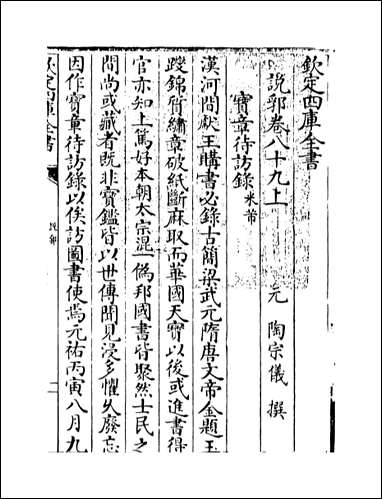 欽定四庫全書
說郛卷八十九上
元 陶宗儀 撰
寶章待訪錄 米芾
漢河間獻王購書必錄古簡梁武元隋唐文帝金題玉
躞錦質繡章破紙斷麻取而華國天寶以後或進書得
官亦知上篤好本朝太宗混一偽邦國書皆聚然士民之
間尚或藏者既非寶鑑皆以世傳聞見浸多懼久廢忘
因作寶章待訪錄以俟訪圖書使焉元祐丙寅八月九
欽定四庫全書
說郛
二